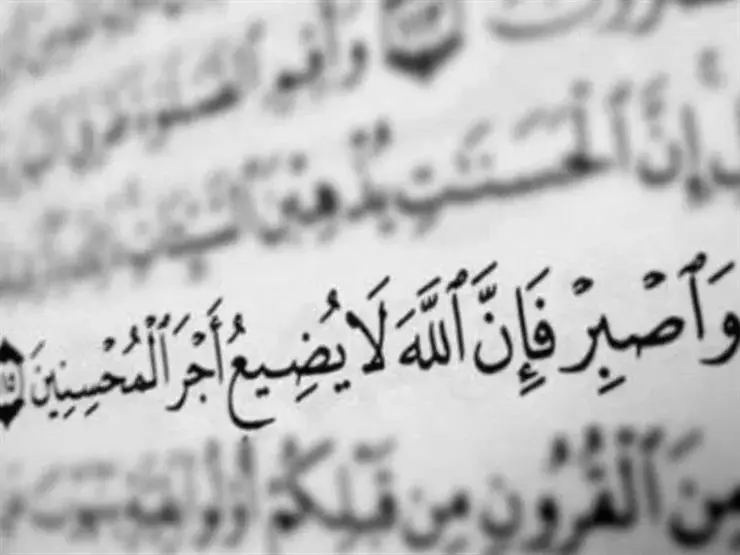 وَأَقِمِ ٱلصَّلَوٰةَ
إِنَّ ٱلْحَسَنَٰتِ يُذْهِبْنَ ٱلسَّيِّـَٔاتِ
وَٱصْبِرْ فَإِنَّ ٱللَّهَ لَا يُضِيعُ أَجْرَ ٱلْمُحْسِنِينَ
مِنَ ٱلْقُرُونِ مِن قَبْلِكُمْ أُو۟لُوا۟ بَقِيَّةٍ